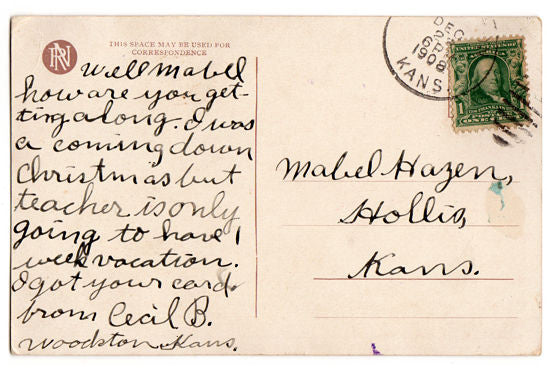 THIS SPACE MAY BE USED FOR
CORRESPONDENCE
Well Mabel
how are you get-
ting along. I was
a coming down
Christmas but
teacher is only
going to have 1
week vacation.
I got your card.
from Cecil B.
Woodston Kans.
DEC
2
6 P
1908
KANS
1
Mabel Hazen,
Hollis,
Kans.